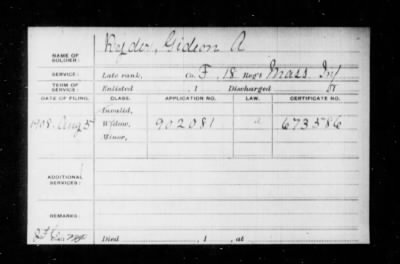 Ryder, Gideon A
NAME OF SOLDIER:
SERVICE: Late rank, Co. F, 18 Reg't Mass Inf
TERM OF SERVICE: Enlisted , 1 Discharged
DATE OF FILING. CLASS. APPLICATION NO. LAW. CERTIFICATE NO.
Invalid,
1908 Aug 5 Widow, 902081 673586
Minor,
ADDITIONAL SERVICES:
REMARKS:
Died , 1 , at